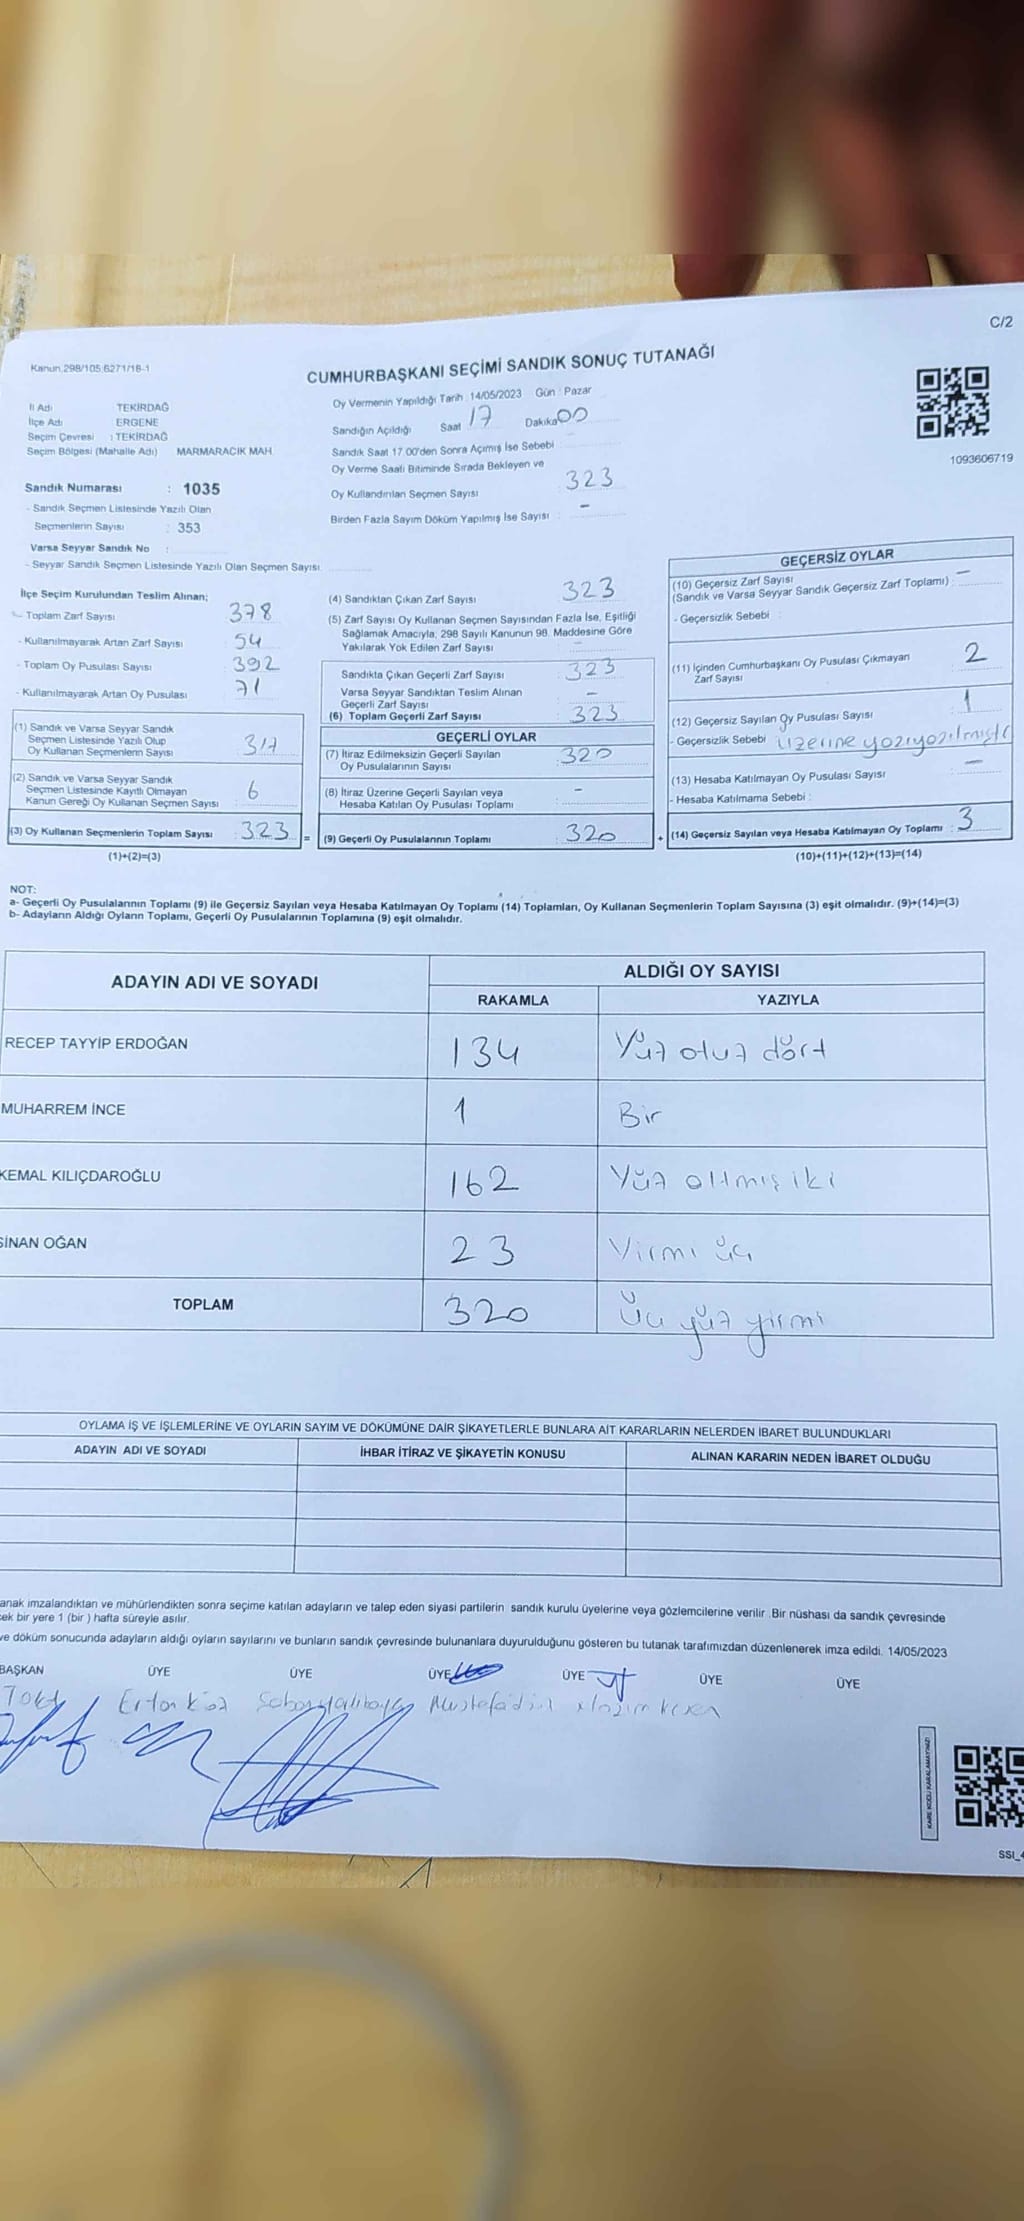 C/2
Kanun,298/105,6271/18-1
CUMHURBAŞKANI SEÇİMİ SANDIK SONUÇ TUTANAĞI
Oy Vermenin Yapıldığı Tarih : 14/05/2023 Gün : Pazar
İl Adı TEKİRDAĞ
İlçe Adı ERGENE
Seçim Çevresi : TEKİRDAĞ
Seçim Bölgesi (Mahalle Adı) MARMARACIK MAH.
Sandığın Açıldığı Saat 17 Dakika 00
Sandık Saat 17.00'den Sonra Açımış İse Sebebi
Oy Verme Saati Bitiminde Sırada Bekleyen ve
Oy Kullandırılan Seçmen Sayısı 323
Birden Fazla Sayım Döküm Yapılmış İse Sayısı : -
1093606719
Sandık Numarası : 1035
- Sandık Seçmen Listesinde Yazılı Olan
Seçmenlerin Sayısı : 353
Varsa Seyyar Sandık No :
- Seyyar Sandık Seçmen Listesinde Yazılı Olan Seçmen Sayısı
İlçe Seçim Kurulundan Teslim Alınan;
- Toplam Zarf Sayısı 378
- Kullanılmayarak Artan Zarf Sayısı 54
- Toplam Oy Pusulası Sayısı 392
- Kullanılmayarak Artan Oy Pusulası 71
(1) Sandık ve Varsa Seyyar Sandık
Seçmen Listesinde Yazılı Olup
Oy Kullanan Seçmenlerin Sayısı 317
(2) Sandık ve Varsa Seyyar Sandık
Seçmen Listesinde Kayıtlı Olmayan
Kanun Gereği Oy Kullanan Seçmen Sayısı 6
(3) Oy Kullanan Seçmenlerin Toplam Sayısı : 323 =
(1)+(2)=(3)
(4) Sandıktan Çıkan Zarf Sayısı 323
(5) Zarf Sayısı Oy Kullanan Seçmen Sayısından Fazla İse, Eşitliği
Sağlamak Amacıyla, 298 Sayılı Kanunun 98. Maddesine Göre
Yakılarak Yok Edilen Zarf Sayısı
Sandıkta Çıkan Geçerli Zarf Sayısı 323
Varsa Seyyar Sandıktan Teslim Alınan
Geçerli Zarf Sayısı -
(6) Toplam Geçerli Zarf Sayısı 323
GEÇERLİ OYLAR
(7) İtiraz Edilmeksizin Geçerli Sayılan
Oy Pusulalarının Sayısı 320
(8) İtiraz Üzerine Geçerli Sayılan veya
Hesaba Katılan Oy Pusulası Toplamı -
(9) Geçerli Oy Pusulalarının Toplamı 320 +
GEÇERSİZ OYLAR
(10) Geçersiz Zarf Sayısı -
(Sandık ve Varsa Seyyar Sandık Geçersiz Zarf Toplamı) :
- Geçersizlik Sebebi :
(11) İçinden Cumhurbaşkanı Oy Pusulası Çıkmayan 2
Zarf Sayısı
(12) Geçersiz Sayılan Oy Pusulası Sayısı 1
- Geçersizlik Sebebi üzerine yazıyazılmıştır
(13) Hesaba Katılmayan Oy Pusulası Sayısı -
- Hesaba Katılmama Sebebi :
(14) Geçersiz Sayılan veya Hesaba Katılmayan Oy Toplamı : 3
(10)+(11)+(12)+(13)=(14)
NOT:
a- Geçerli Oy Pusulalarının Toplamı (9) ile Geçersiz Sayılan veya Hesaba Katılmayan Oy Toplamı (14) Toplamları, Oy Kullanan Seçmenlerin Toplam Sayısına (3) eşit olmalıdır. (9)+(14)=(3)
b- Adayların Aldığı Oyların Toplamı, Geçerli Oy Pusulalarının Toplamına (9) eşit olmalıdır.
ADAYIN ADI VE SOYADI ALDIĞI OY SAYISI
RAKAMLA YAZIYLA
RECEP TAYYİP ERDOĞAN 134 Yüz otuz dört
MUHARREM İNCE 1 Bir
KEMAL KILIÇDAROĞLU 162 Yüz altmış iki
SİNAN OĞAN 23 Yirmi üç
TOPLAM 320 Üç yüz yirmi
OYLAMA İŞ VE İŞLEMLERİNE VE OYLARIN SAYIM VE DÖKÜMÜNE DAİR ŞİKAYETLERLE BUNLARA AİT KARARLARIN NELERDEN İBARET BULUNDUKLARI
ADAYIN ADI VE SOYADI İHBAR İTİRAZ VE ŞİKAYETİN KONUSU ALINAN KARARIN NEDEN İBARET OLDUĞU
anak imzalandıktan ve mühürlendikten sonra seçime katılan adayların ve talep eden siyasi partilerin sandık kurulu üyelerine veya gözlemcilerine verilir. Bir nüshası da sandık çevresinde
cek bir yere 1 (bir ) hafta süreyle asılır.
ve döküm sonucunda adayların aldığı oyların sayılarını ve bunların sandık çevresinde bulunanlara duyurulduğunu gösteren bu tutanak tarafımızdan düzenlenerek imza edildi. 14/05/2023
BAŞKAN ÜYE ÜYE ÜYE ÜYE ÜYE ÜYE
KARE KODU KARALAMAYINIZ!
SSI_4